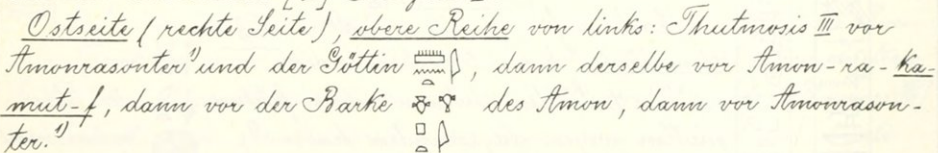 Ostseite (rechte Seite), obere Reihe von links: Thutmosis III vor
Amonrasonter¹⁾ und der Göttin 𓇋𓏠𓈖𓏏, dann derselbe vor Amon-ra-Ka-
mut-f, dann vor der Barke des Amon, dann vor Amonrason-
ter.¹⁾